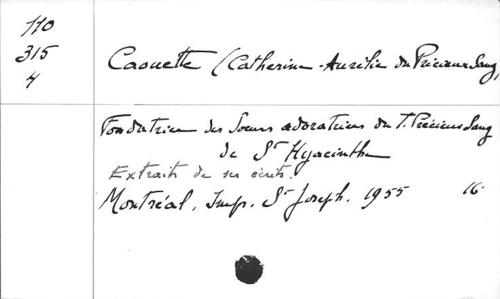 110
315
4
Caouette (Catherine-Aurélie du Précieux Sang,
Fondatrice des Soeurs adoratrices du T. Précieux Sang
de St Hyacinthe
Extraits de ses écrits.
Montréal, Imp. St Joseph. 1955 16